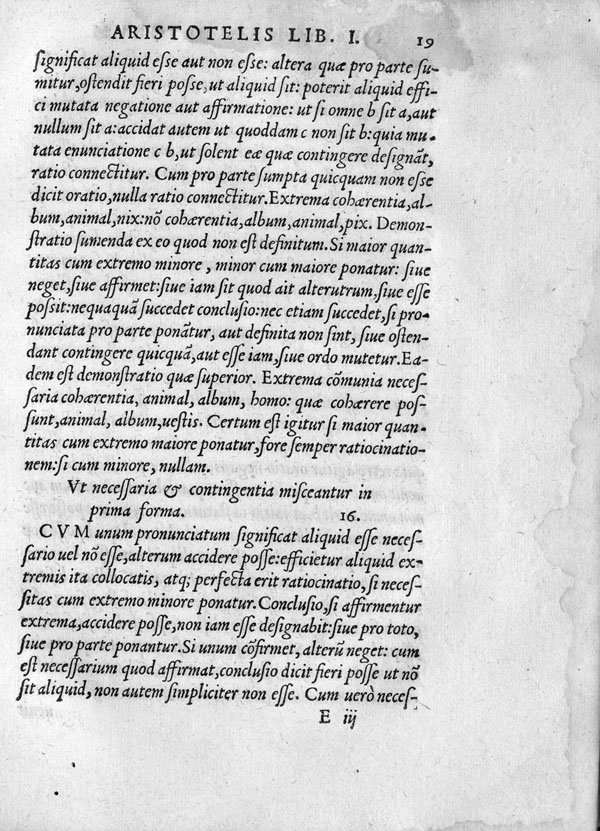 ARISTOTELIS LIB. I. 19
significat aliquid esse aut non esse: altera quæ pro parte su-
mitur, ostendit fieri posse, ut aliquid sit: poterit aliquid effi-
ci mutata negatione aut affirmatione: ut si omne b sit a, aut
nullum sit a: accidat autem ut quoddam c non sit b: quia mu-
tata enunciatione c b, ut solent eæ quæ contingere designãt,
ratio connectitur. Cum pro parte sumpta quicquam non esse
dicit oratio, nulla ratio connectitur. Extrema cohærentia, al-
bum, animal, nix: nõ cohærentia, album, animal, pix. Demon-
stratio sumenda ex eo quod non est definitum. Si maior quan-
titas cum extremo minore, minor cum maiore ponatur: siue
neget, siue affirmet: siue iam sit quod ait alterutrum, siue esse
possit: nequaquã succedet conclusio: nec etiam succedet, si pro-
nunciata pro parte ponãtur, aut definita non sint, siue osten-
dant contingere quicquã, aut esse iam, siue ordo mutetur. Ea-
dem est demonstratio quæ superior. Extrema cõmunia neces-
saria cohærentia, animal, album, homo: quæ cohærere pos-
sunt, animal, album, uestis. Certum est igitur si maior quan-
titas cum extremo maiore ponatur, fore semper ratiocinatio-
nem: si cum minore, nullam.
Vt necessaria & contingentia misceantur in
prima forma. 16.
CVM unum pronunciatum significat aliquid esse neces-
sario uel nõ esse, alterum accidere posse: efficietur aliquid ex-
tremis ita collocatis, atq; perfecta erit ratiocinatio, si neces-
sitas cum extremo minore ponatur. Conclusio, si affirmentur
extrema, accidere posse, non iam esse designabit: siue pro toto,
siue pro parte ponantur. Si unum cõfirmet, alterũ neget: cum
est necessarium quod affirmat, conclusio dicit fieri posse ut nõ
sit aliquid, non autem simpliciter non esse. Cum uerò neces-
E iij